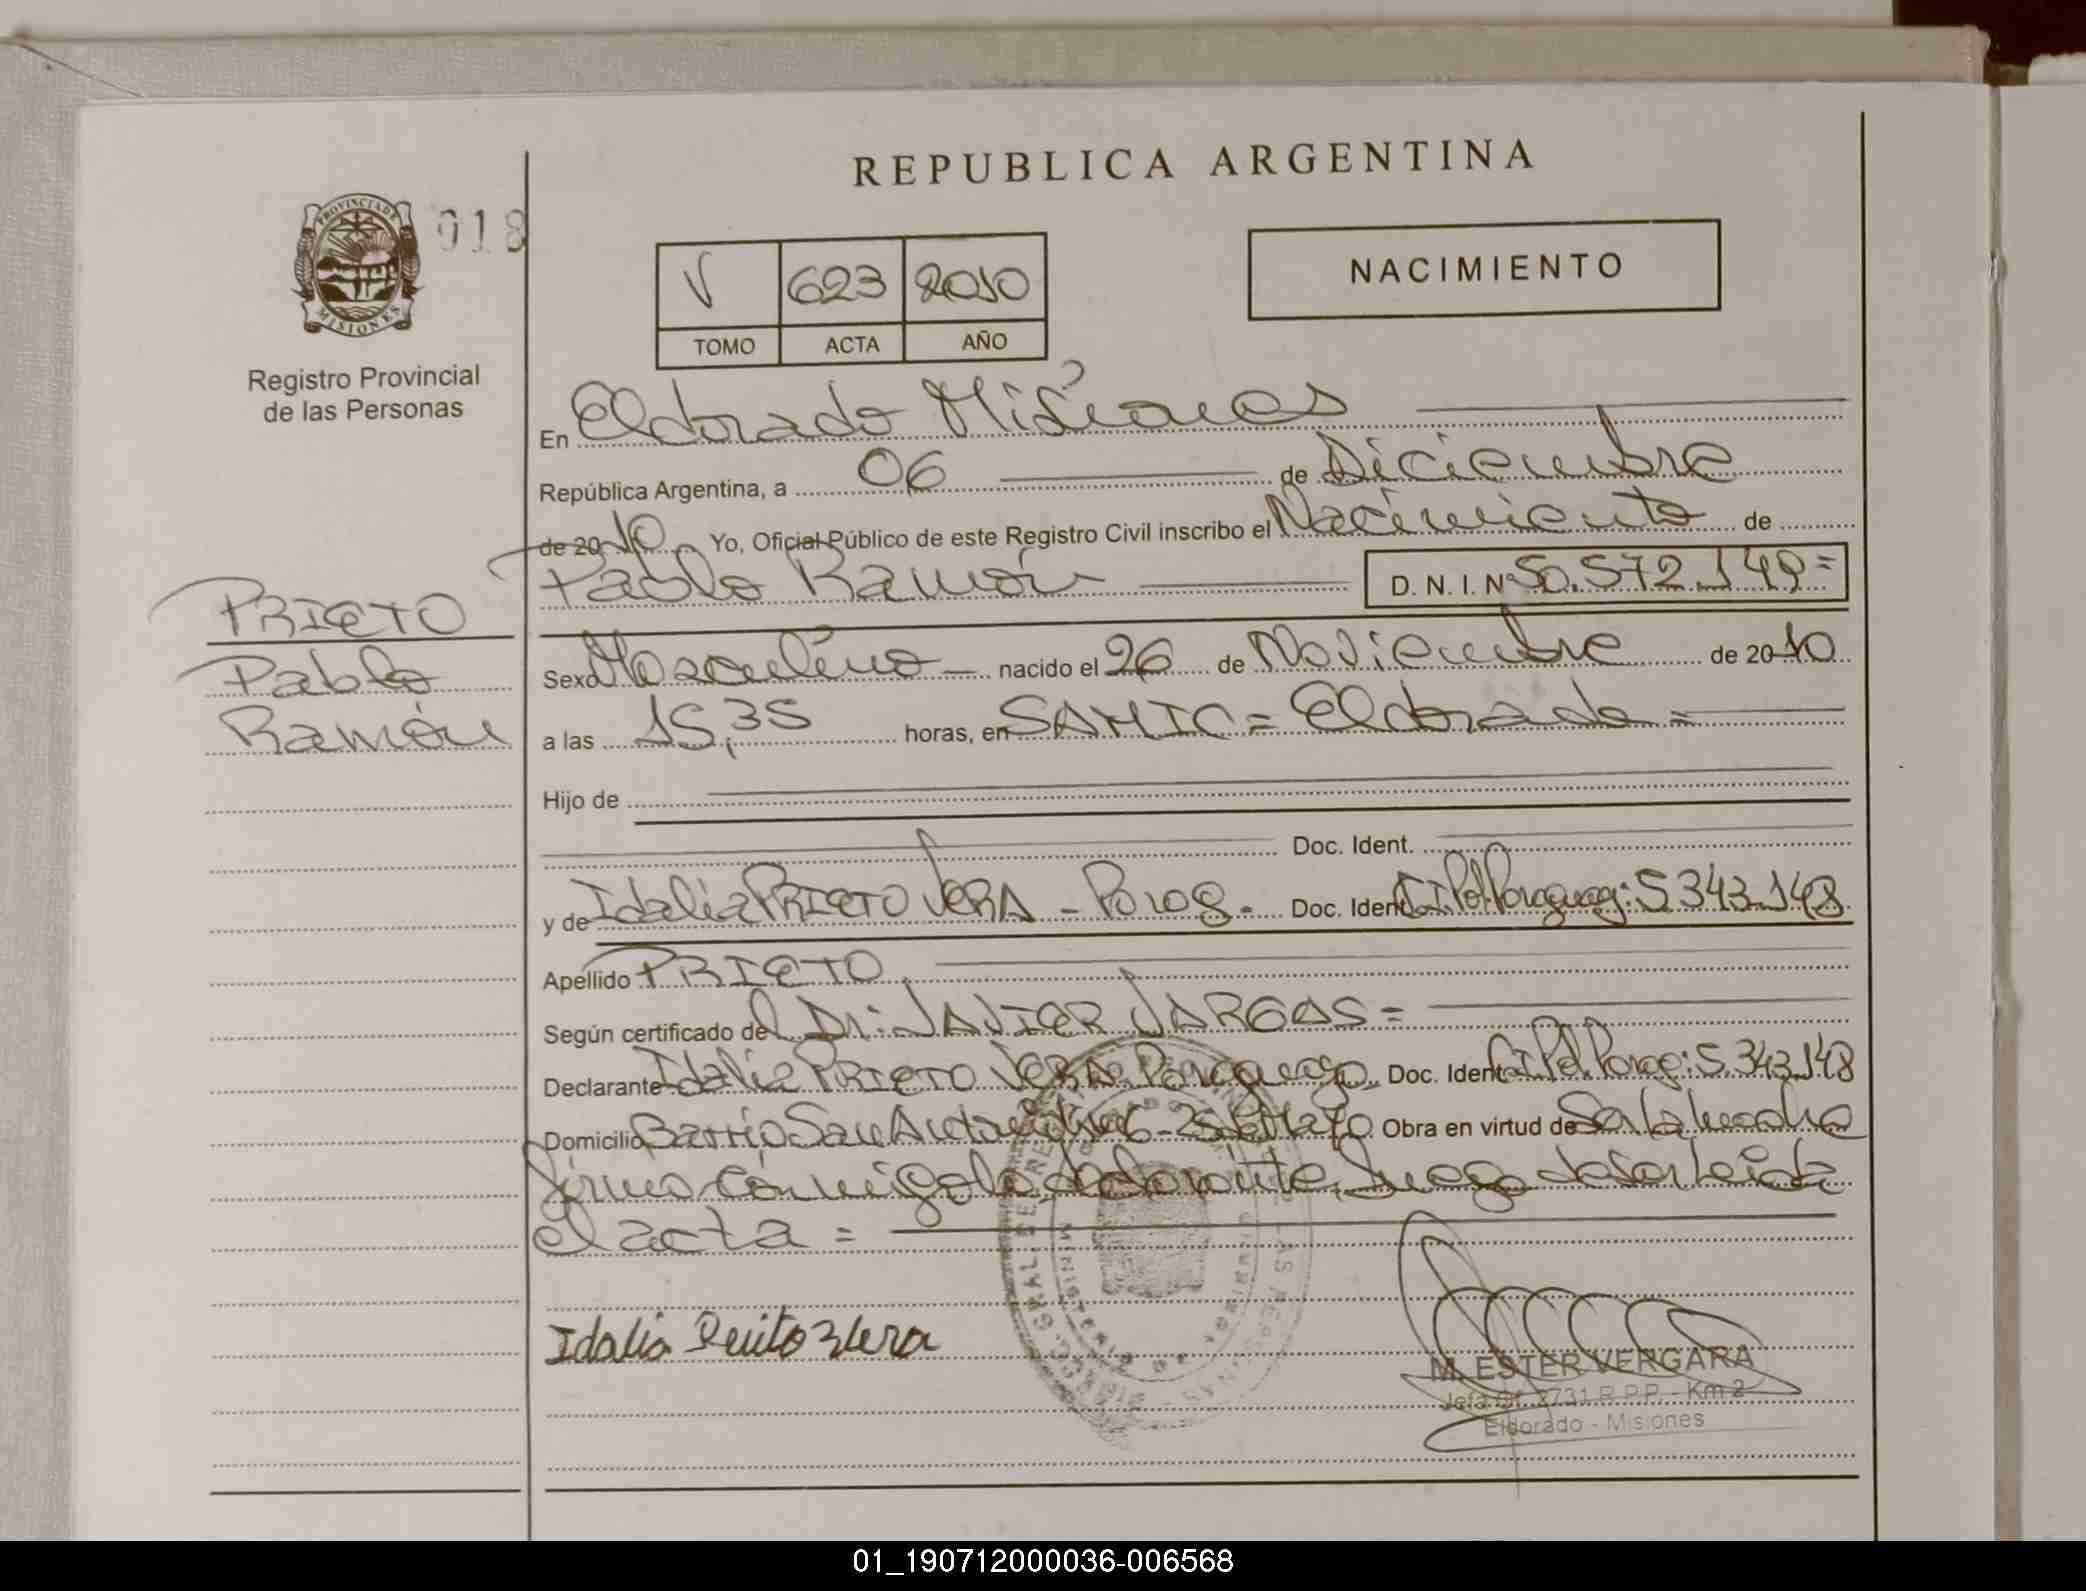 REPUBLICA ARGENTINA
PROVINCIA DE
MISIONES
018
Registro Provincial
de las Personas
V 623 2010
TOMO ACTA AÑO
NACIMIENTO
En Eldorado Misiones
República Argentina, a 06 de Diciembre
de 2010 Yo, Oficial Público de este Registro Civil inscribo el Nacimiento de
Pablo Ramón D. N. I. Nº 50.572.149=
PRIETO
Pablo
Ramón
Sexo Masculino nacido el 26 de Noviembre de 2010
a las 15,35 horas, en SAMIC = Eldorado =
Hijo de
Doc. Ident.
y de Idalia PRIETO VERA - Parag - Doc. Ident. C.I.Pol.Paraguay: 5343.148
Apellido PRIETO
Según certificado del Dr: JAVIER VARGAS =
Declarante Idalia PRIETO VERA Paraguaya Doc. Ident. C.I.Pol.Parag: 5.343.148
Domicilio Barrio San Antonio 25 de Mayo Obra en virtud de Ser la madre
firma conmigo la declarante, luego de ser leída
el acta =
Idalia Prieto Vera
M. ESTER VERGARA
Jefa Of. 2731 R.P.P. - Km 2
Eldorado - Misiones
01_190712000036-006568